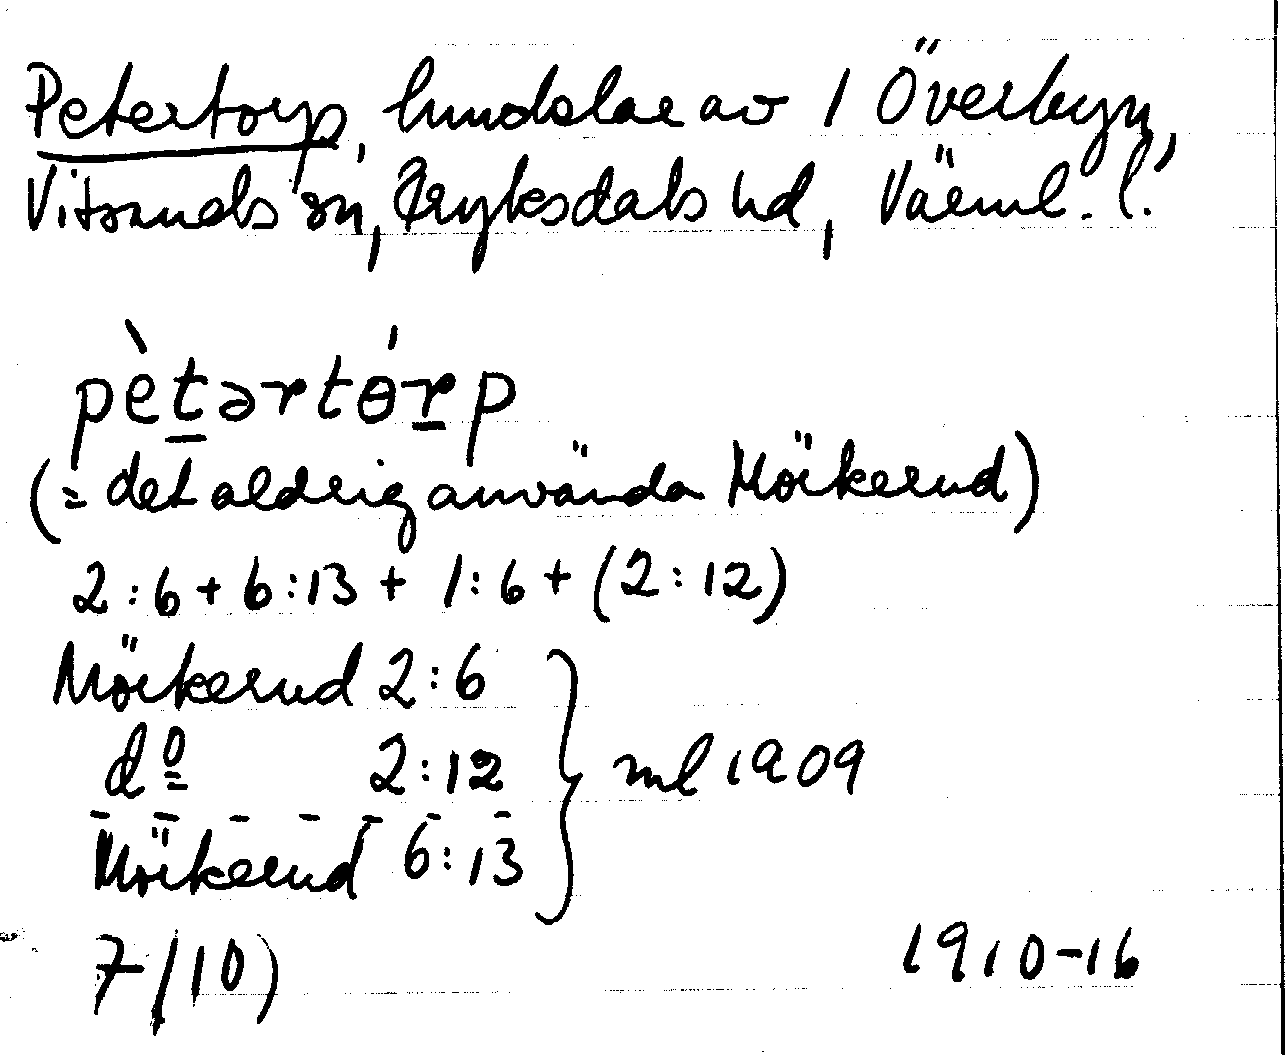 Petertorp, hmdslar av 1 Överbyn,
Vitsands sn, Fryksdals hd, Värml. l.
pètərtɵ́rp
(= det aldrig använda Mörkerud)
2:6 + 6:13 + 1:6 + (2:12)
Mörkerud 2:6
do 2:12 } ml 1909
Mörkerud 6:13
7/10) 1910-16